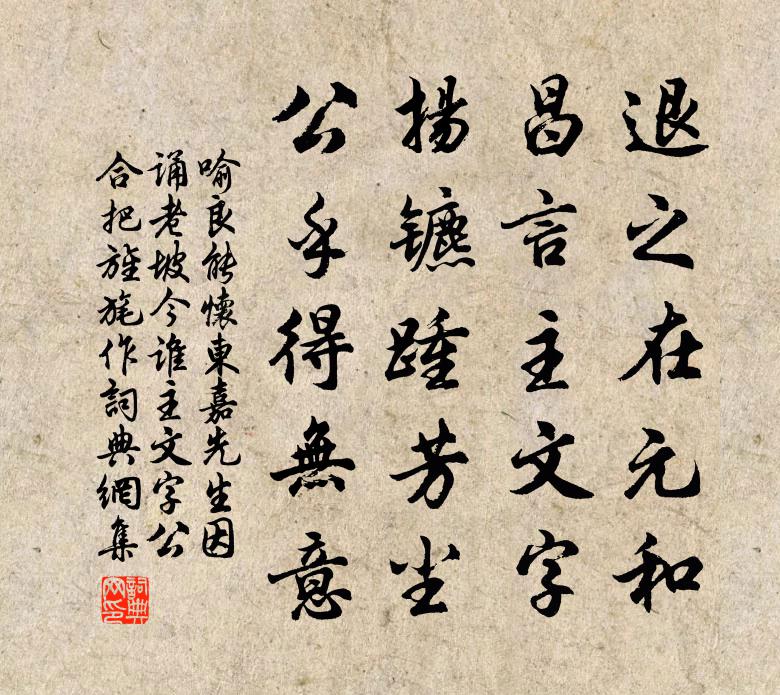 退之在元和
昌言主文字
揚镳踵芳尘
公乎得無意
喻良能懷東嘉先生因
誦老坡今誰主文字公
合把旌旄作詞典網集
詞典网印